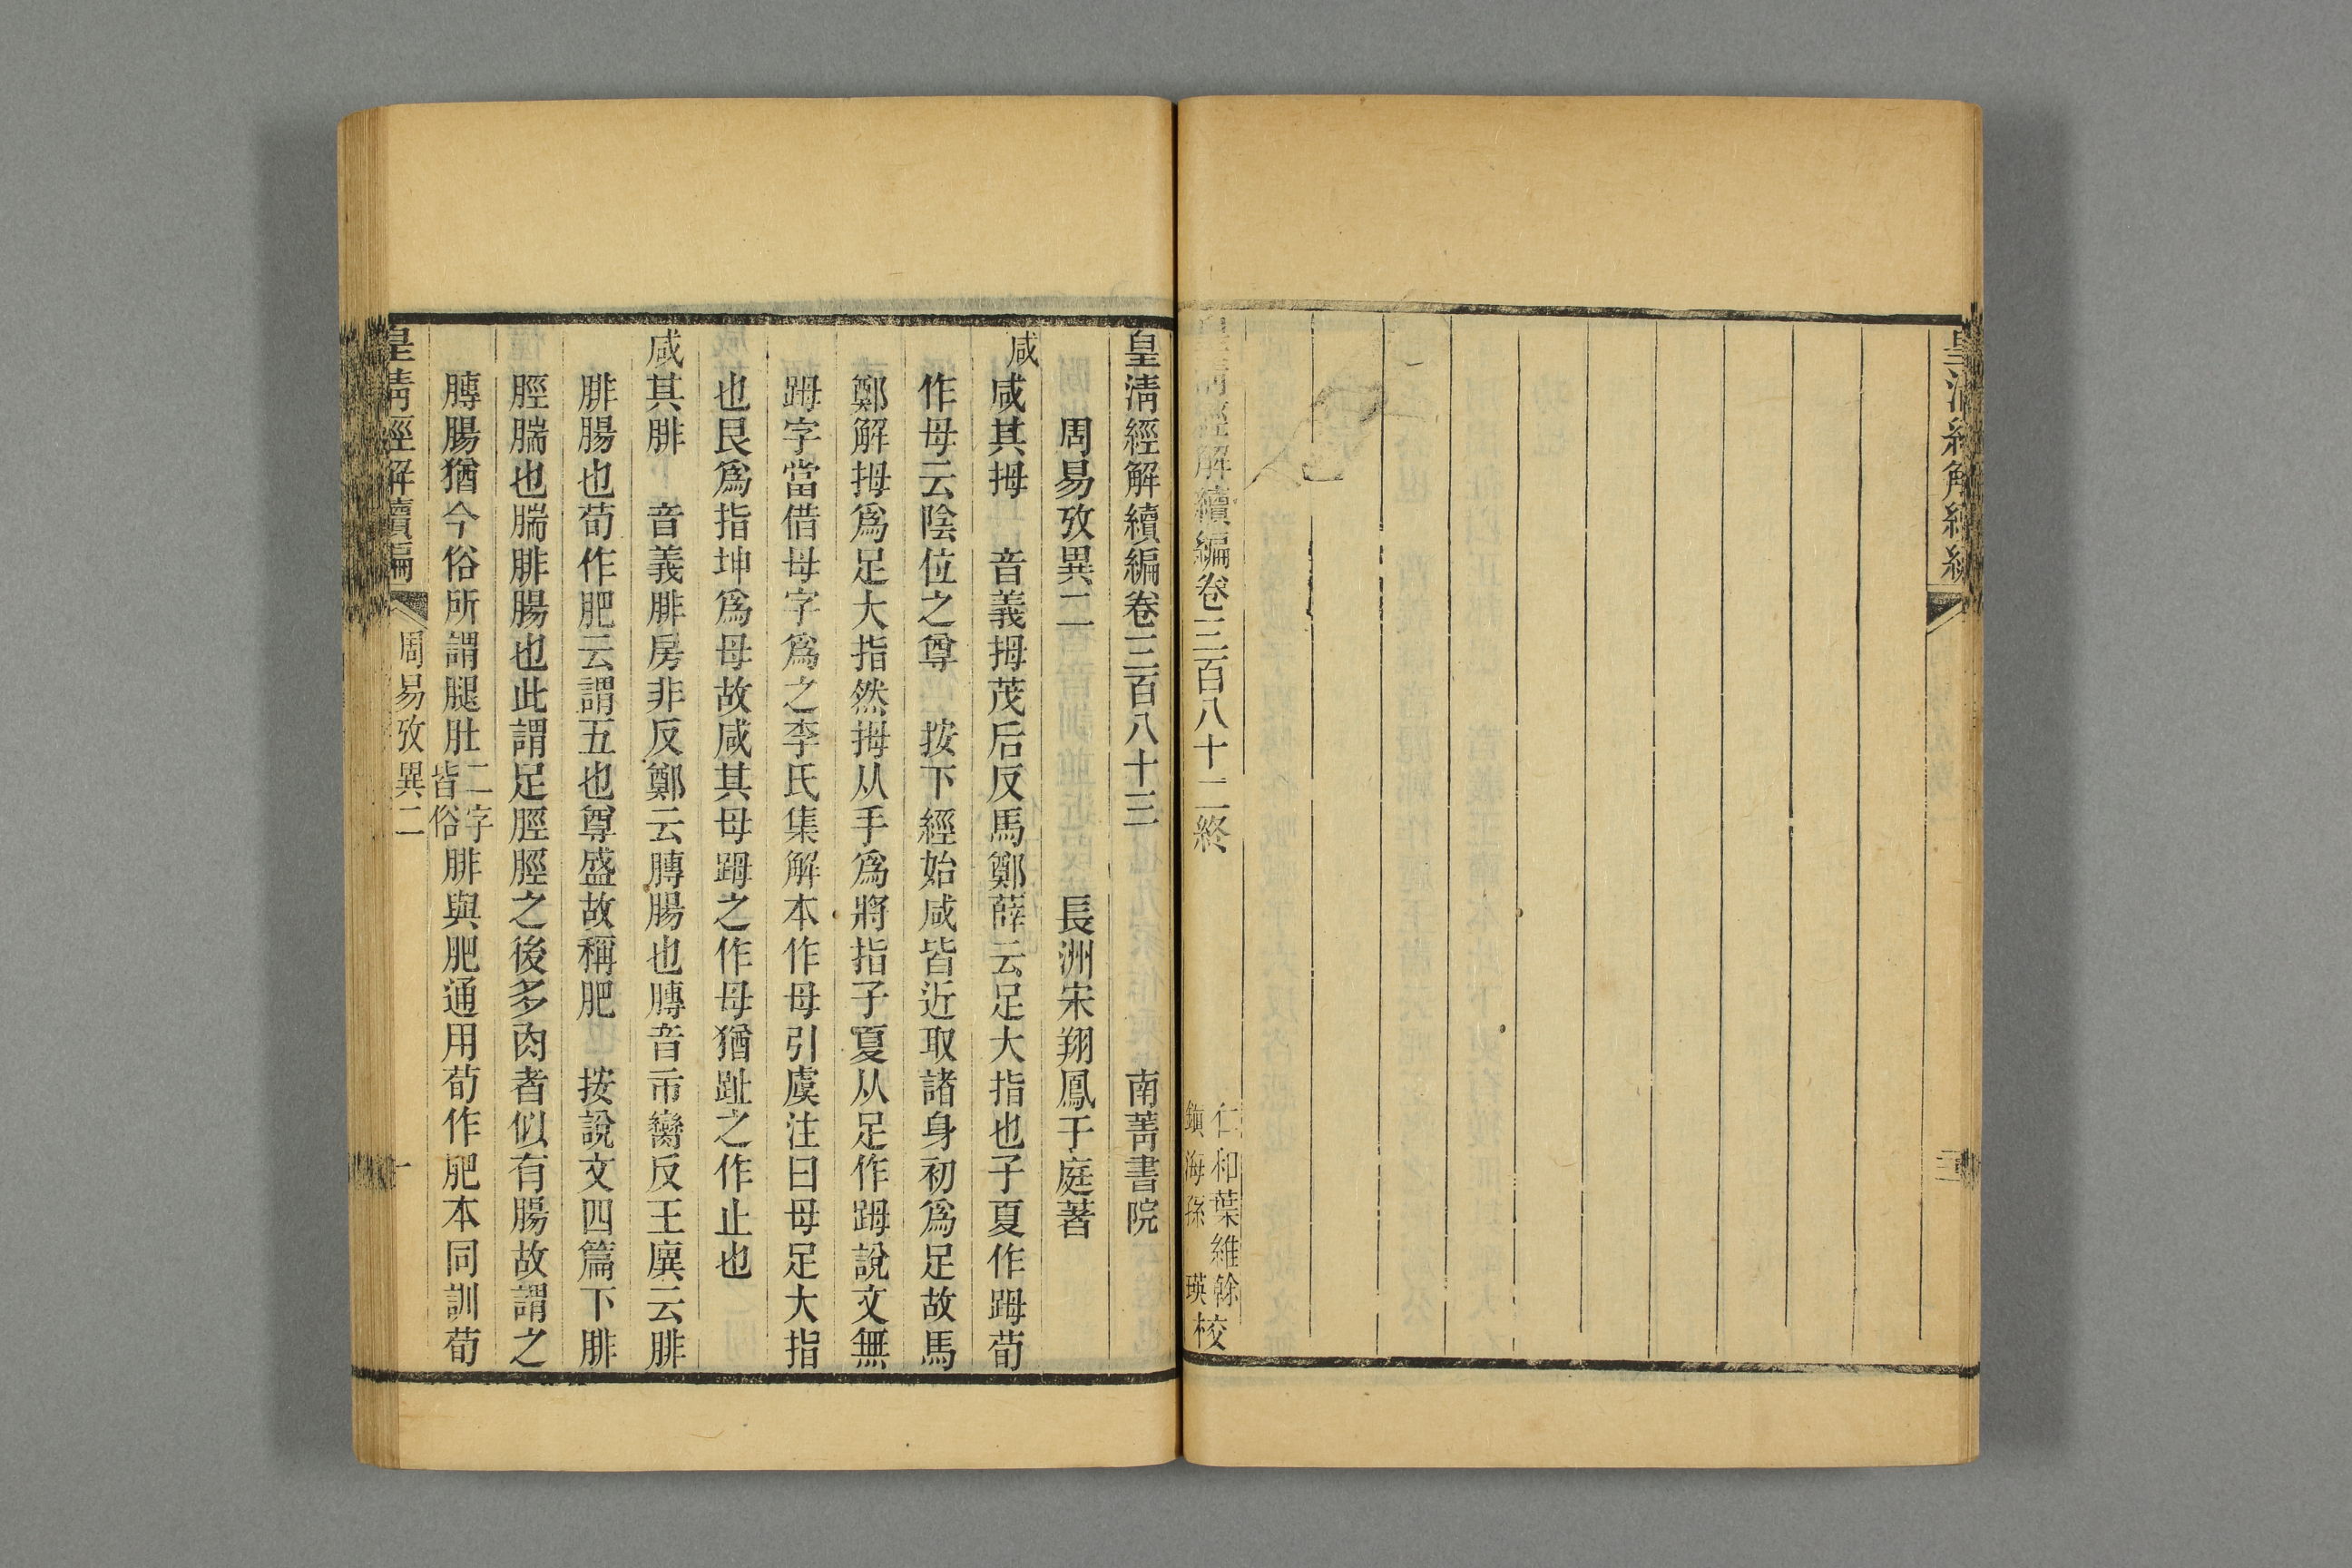 皇清經解續編卷三百八十二終
仁和葉維榦
鎭海孫瑛校
皇清經解續編卷三百八十三
南菁書院
周易攷異二
長洲宋翔鳳于庭著
咸
咸其拇　音義拇茂后反馬鄭薛云足大指也子夏作䟢荀
作母云陰位之尊　按下經始咸皆近取諸身初爲足故馬
鄭解拇爲足大指然拇从手爲將指子夏从足作䟢說文無
䟢字當借母字爲之李氏集解本作母引虞注曰母足大指
也艮爲指坤爲母故咸其母䟢之作母猶趾之作止也
咸其腓　音義腓房非反鄭云膞腸也膞音市臠反王廙云腓
腓腸也荀作肥云謂五也尊盛故稱肥　按說文四篇下腓
脛腨也腨腓腸也此謂足脛脛之後多肉者似有腸故謂之
膞腸猶今俗所謂腿肚二字皆俗腓與肥通用荀作肥本同訓荀
皇清經解續編
周易攷異二
一